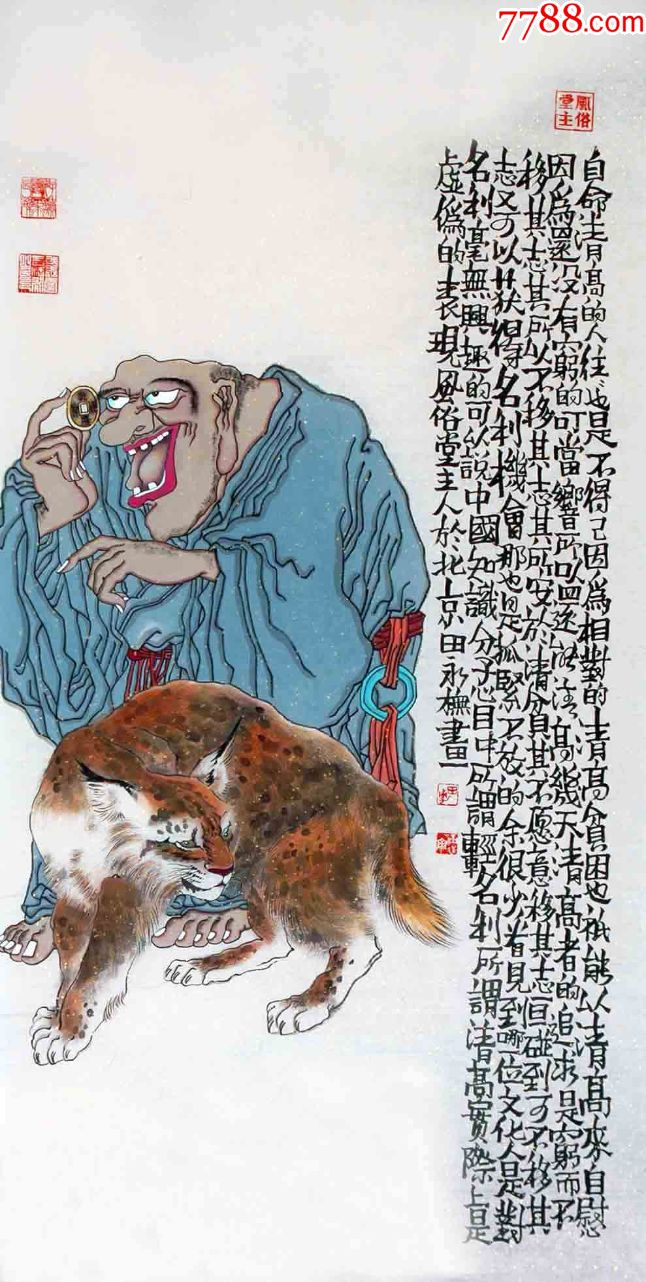 7788.com
風俗
堂主
自命清高的人往々是不得已因爲相對的清高貧困也衹能以清高來自慰
因爲還没有窮的叮當響所以四還能清高幾天清高者的追求是窮而不
移其志其所以不移其志其所安於清貧其不愿意移其志但碰到可不移其
志又可以獲得名利機會那也是抓緊不放的余很少有見到哪位文化人是對
名利毫無興趣的可以說中國知識分子心目中所謂輕名利所謂清高實際上是
虚僞的表現風俗堂主人於北京田永樵畫